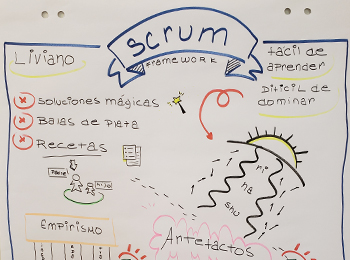 Scrum
Framework
Liviano
Facil de
aprender
Dificil de
dominar
Soluciones mágicas
Balas de plata
Recetas
PADRE
HIJO
ri
ha
shu
Empirismo
Artefactos